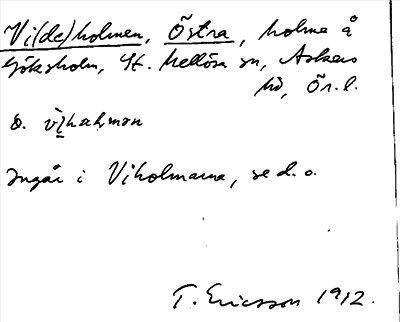 Vi(de)holmen, Östra, holme å
Göksholm, St. Mellösa sn, Askers
hd, Ör. l.
Ingår i Viholmarna, se d. o.
T. Ericsson 1912.